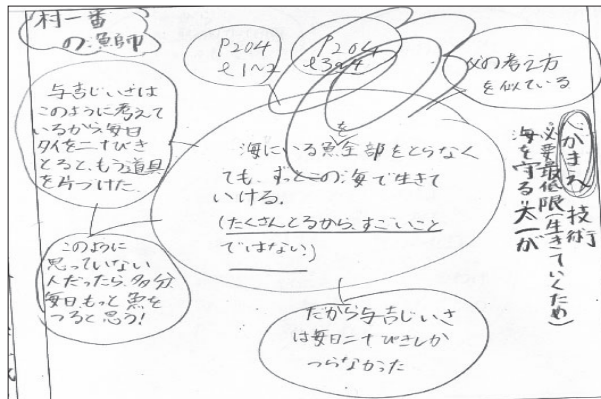 村一番
の漁師
P204
l1〜2
P204
l3〜4
父の考え方
を似ている
与吉じいさは
このように考えて
いるから毎日
タイを二十ぴき
とると、もう道具
を片づけた。
を
海にいる魚全部をとらなく
ても、ずっとこの海で生きて
いける。
(たくさんとるから、すごいこと
ではない。)
このように
思っていない
人だったら、多分、
毎日、もっと魚を
つると思う!
だから与吉じいさ
は毎日二十ぴきしか
つらなかった
心がまえ 技術
必要最低限(生きていくため)
海を守る 太一が